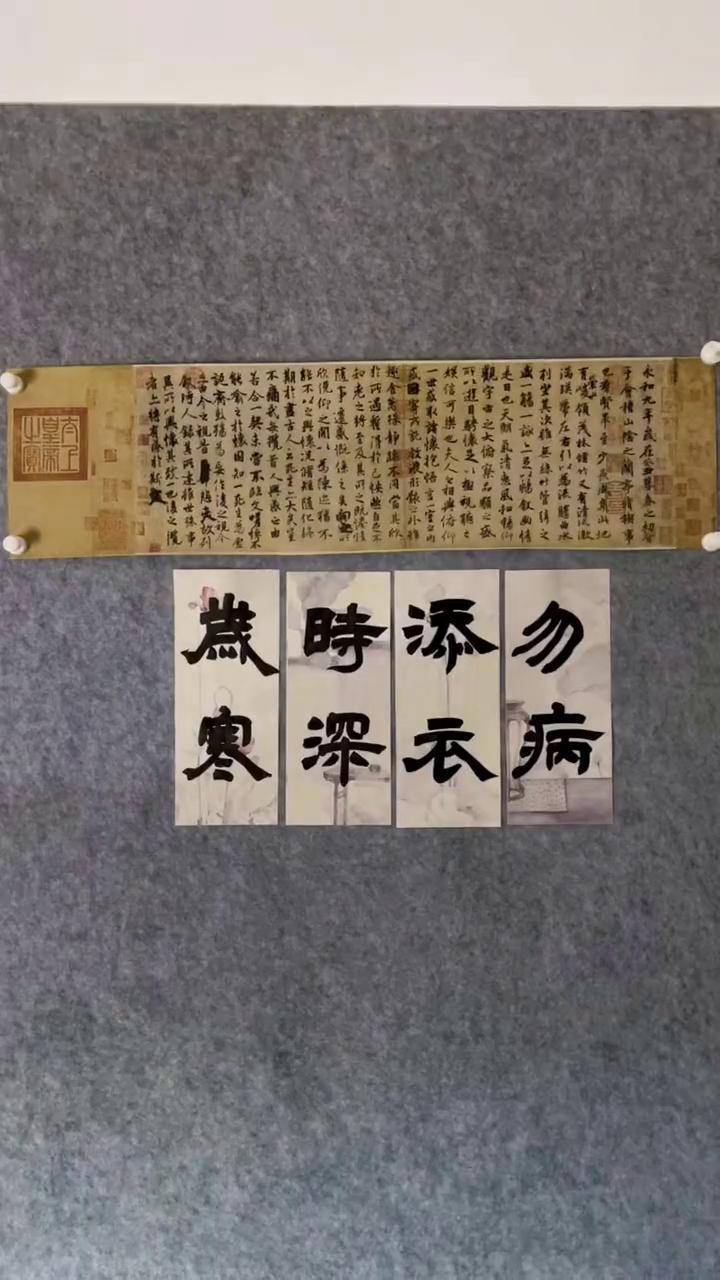 永和九年歲在癸丑暮春之初會
于會稽山陰之蘭亭脩稧事
也羣賢畢至少長咸集此地
有崇山峻領茂林脩竹又有清流激
湍暎帶左右引以為流觴曲水
列坐其次雖無絲竹管弦之
盛一觴一詠亦足以暢叙幽情
是日也天朗氣清惠風和暢仰
觀宇宙之大俯察品類之盛
所以遊目騁懷足以極視聽之
娛信可樂也夫人之相與俯仰
一世或取諸懷抱悟言一室之內
或因寄所託放浪形骸之外雖
趣舍萬殊靜躁不同當其欣
於所遇蹔得於己怏然自足不
知老之將至及其所之既惓情
隨事遷感慨係之矣向之所
欣俛仰之閒以為陳迹猶不
能不以之興懷況脩短隨化終
期於盡古人云死生亦大矣豈
不痛哉每攬昔人興感之由
若合一契未嘗不臨文嗟悼不
能喻之於懷固知一死生為虛
誕齊彭殤為妄作後之視今
亦由今之視昔悲夫故列
敘時人錄其所述雖世殊事
異所以興懷其致一也後之攬
者亦將有感於斯文
太上皇帝之寶
歲寒
時深
添衣
勿病